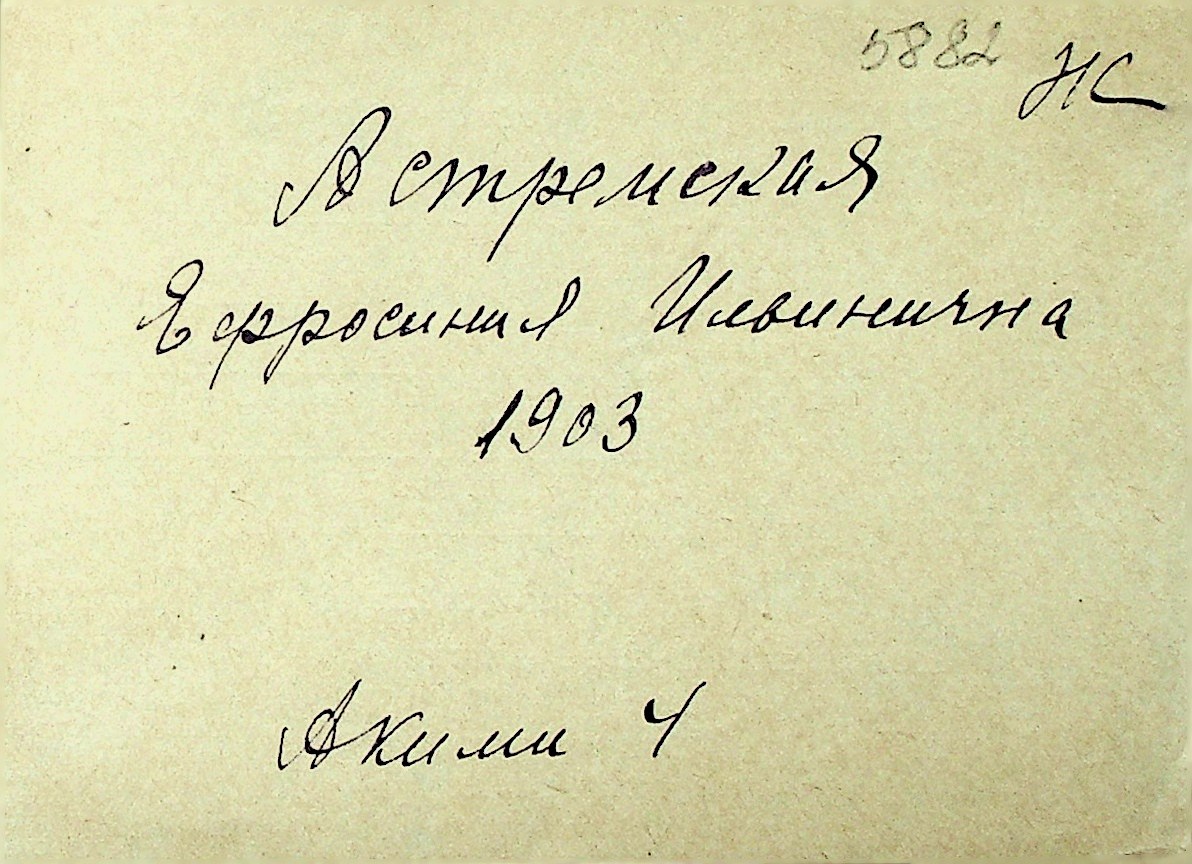 5882 НС
Астремская
Ефросиния Ильинична
1903
Акими 4